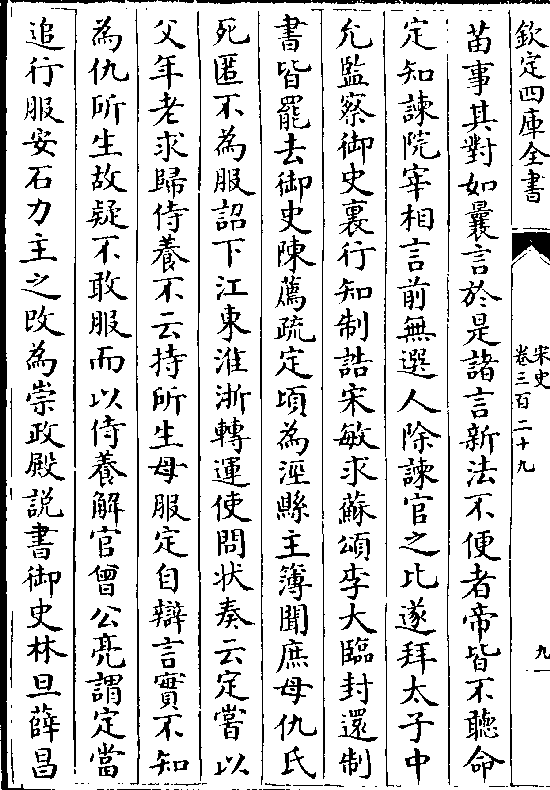 欽定四庫全書
宋史
卷三百二十九
九
苗事其對如曩言於是諸言新法不便者帝皆不聽命
定知諫院宰相言前無選人除諫官之比遂拜太子中
允監察御史裏行知制誥宋敏求蘇頌李大臨封還制
書皆罷去御史陳薦疏定頃為涇縣主簿聞庶母仇氏
死匿不為服詔下江東淮浙轉運使問状奏云定嘗以
父年老求歸侍養不云持所生母服定自辯言實不知
為仇所生故疑不敢服而以侍養解官曾公亮謂定當
追行服安石力主之改為崇政殿説書御史林旦薛昌